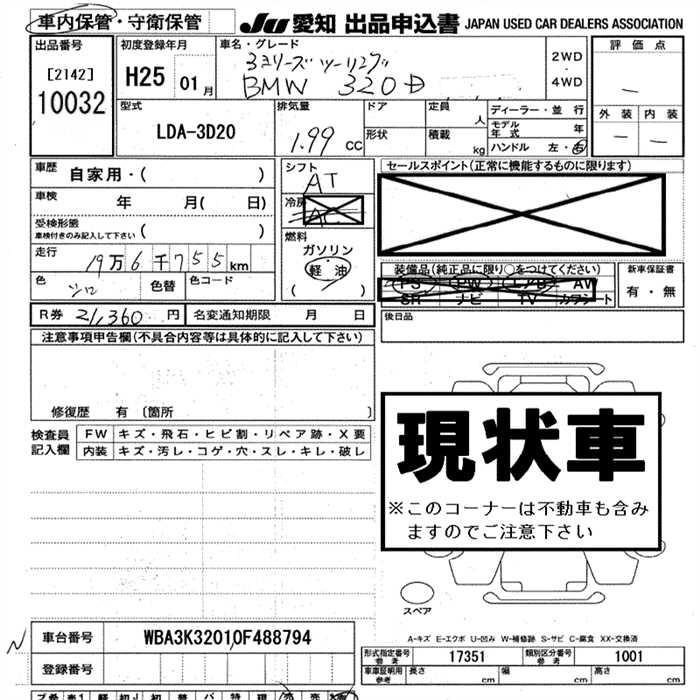 車内保管・守衛保管 JU 愛知 出品申込書 JAPAN USED CAR DEALERS ASSOCIATION
出品番号 初度登録年月 車名・グレード 2WD・4WD 評価点
[2142] H25 01月 3シリーズ ツーリング
10032 BMW 320D
外装 内装
型式 排気量 ドア 定員 人 ディーラー・並行
LDA-3D20 1.99 cc 形状 積載 kg モデル年式 年
ハンドル 左・右
車歴 自家用・( ) シフト AT セールスポイント(正常に機能するものに限ります)
車検 年 月( 日) 冷房 AC
受検形態 車検付きのみ記入して下さい ( )
燃料 ガソリン 軽油 ( )
走行 19万6千755km
装備品(純正品に限り○をつけてください) 新車保証書
PS PW エアB AW 有・無
SR ナビ TV カワシート
色 シロ 色替 色コード
R券 21,360円 名変通知期限 月 日 後日品
注意事項申告欄(不具合内容等は具体的に記入して下さい)
修復歴 有 〔箇所 〕
検査員記入欄 FW キズ・飛石・ヒビ割・リペア跡・X要
内装 キズ・汚レ・コゲ・穴・スレ・キレ・破レ
現状車
※このコーナーは不動車も含み
ますのでご注意下さい
スペア
A-キズ E-エクボ U-凹み W-補修跡 S-サビ C-腐食 XX-交換済
N 車台番号 WBA3K32010F488794
形式指定番号 参考 17351 類別区分番号 参考 1001
登録番号 車庫証明用 参考 長さ cm 幅 cm 高さ cm